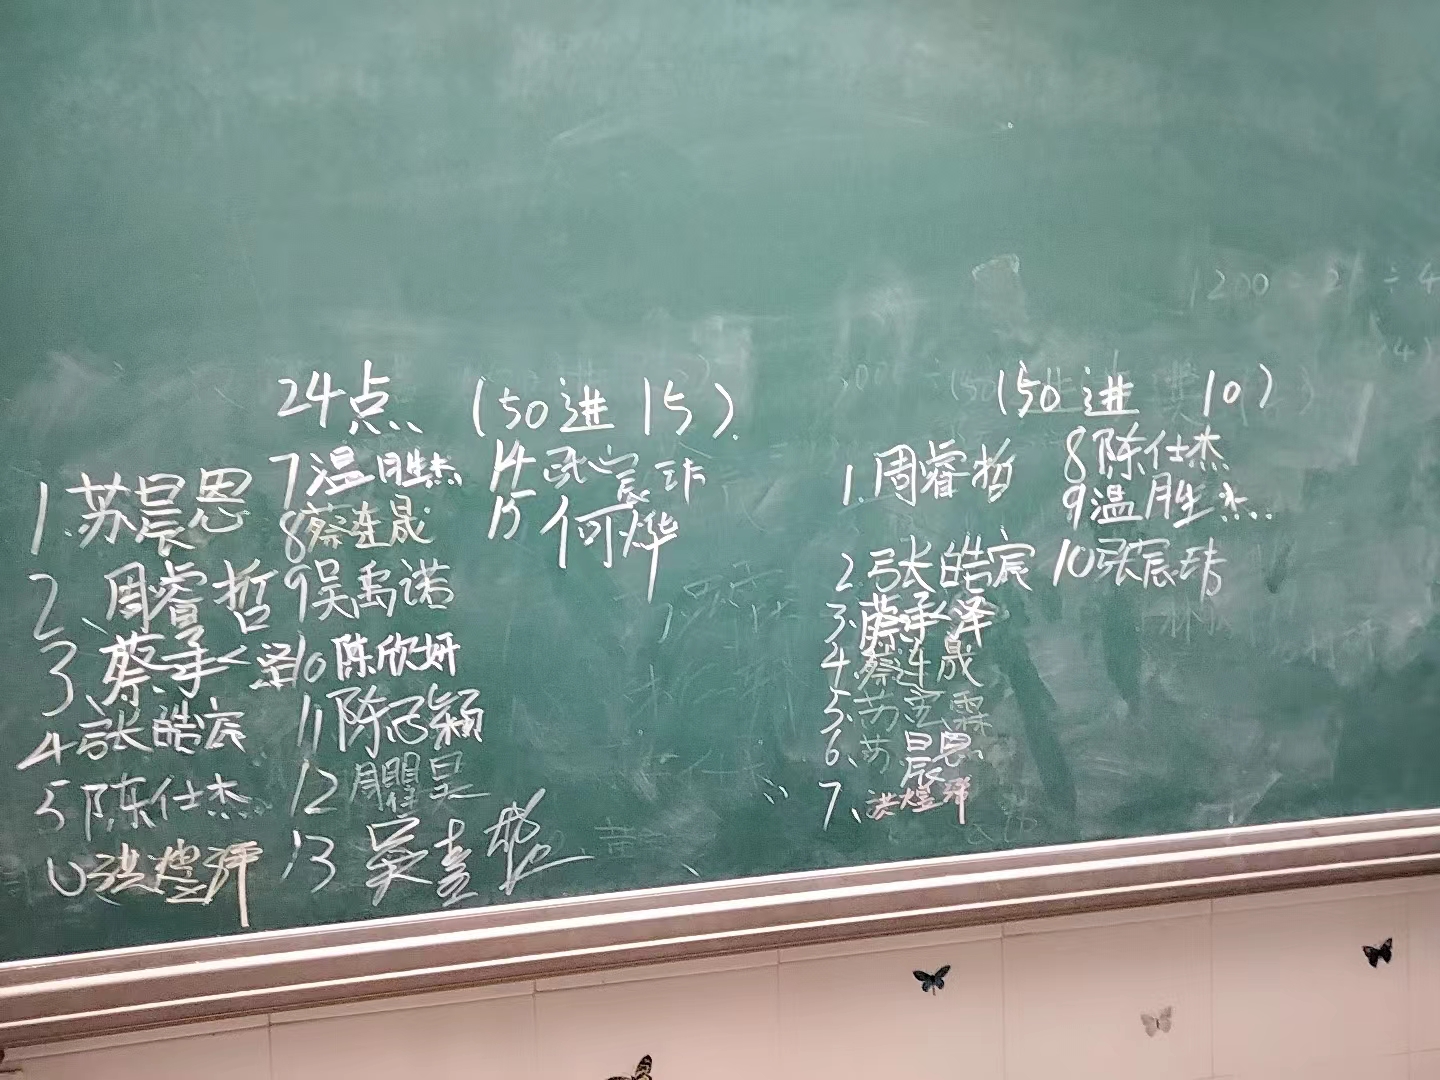 24点 (50进15)
1.苏晨恩
2 周睿哲
3.蔡承泽
4张皓宸
5陈仕杰
6洪煜泽
7温胜杰
8蔡连晟
9吴禹诺
10陈欣妍
11陈思颖
12瞿昊
13吴
14张宸玮
15何烨
(50进10)
1.周睿哲
2.张皓宸
3.蔡承泽
4.蔡连晟
5.苏霖
6.苏晨恩
7、洪煜泽
8陈仕杰
9温胜杰
10张宸玮
1200 21 ÷4